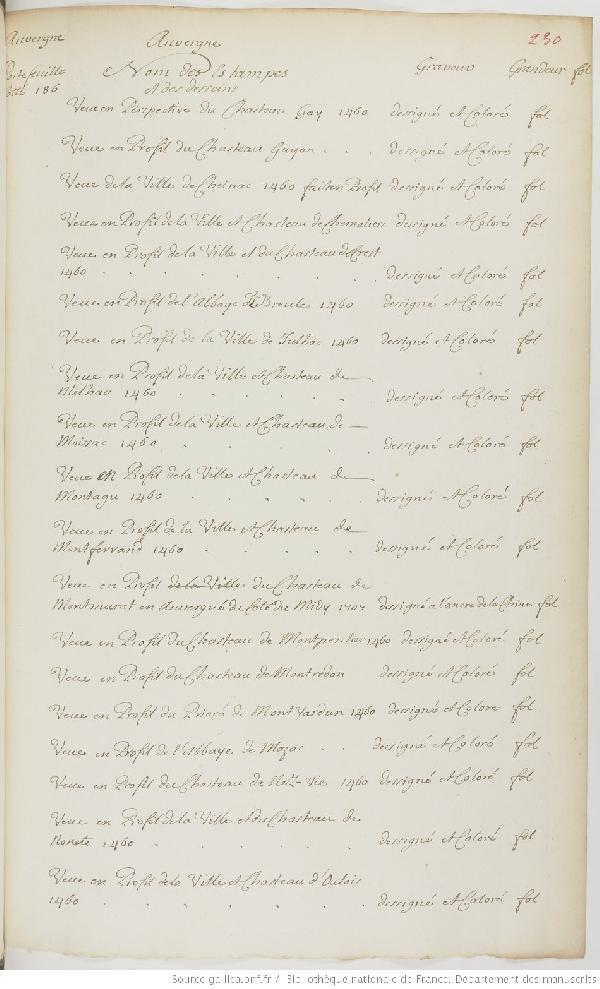 Auvergne Auvergne 230
Portefeuille Nom des Estampes Graveur Grandeur fol
Cotté 186 et des desseins
Veue en Perspective du Chasteau Gay 1460 dessigné et Coloré fol
Veue en Profil du Chasteau Guyon . . . dessigné et Coloré fol
Veue de la Ville de 1460 fait en Profil dessigné et Coloré fol
Veue en Profil de la Ville et Chasteau de dessigné et Coloré fol
Veue en Profil de la Ville et du Chasteau de Crest
1460 . . . . . . dessigné et Coloré fol
Veue en Profil de l'Abbaye de 1460 dessigné et Coloré fol
Veue en Profil de la Ville de Julhac 1460 dessigné et Coloré fol
Veue en Profil de la Ville et Chasteau de
Melhau 1460 . . . . . dessigné et Coloré fol
Veue en Profil de la Ville et Chasteau de
Moissac 1460 . . . . . dessigné et Coloré fol
Veue en Profil de la Ville et Chasteau de
Montagu 1460 . . . . dessigné et Coloré fol
Veue en Profil de la Ville et Chasteau de
Montferrand 1460 . . . . dessigné et Coloré fol
Veue en Profil de la Ville du Chasteau de
Montmurat en Auvergne du Coté du Midy 17 dessigné a l'ancre de la Chine fol
Veue en Profil du Chasteau de Montpensier 1460 dessigné et Coloré fol
Veue en Profil du Chasteau de Montredon dessigné et Coloré fol
Veue en Profil du Prioré de Mont Vardun 1460 dessigné et Colore fol
Veue en Profil de l'Abbaye de Mozac . . dessigné et Coloré fol
Veue en Profil du Chasteau de 1460 dessigné et Coloré fol
Veue en Profil de la Ville et du Chasteau de
Nonete 1460 . . . . . dessigné et Coloré fol
Veue en Profil de la Ville et Chasteau
1460 . . . . . . dessigné et Coloré fol
Source gallica.bnf.fr / Bibliothèque nationale de France. Département des manuscrits